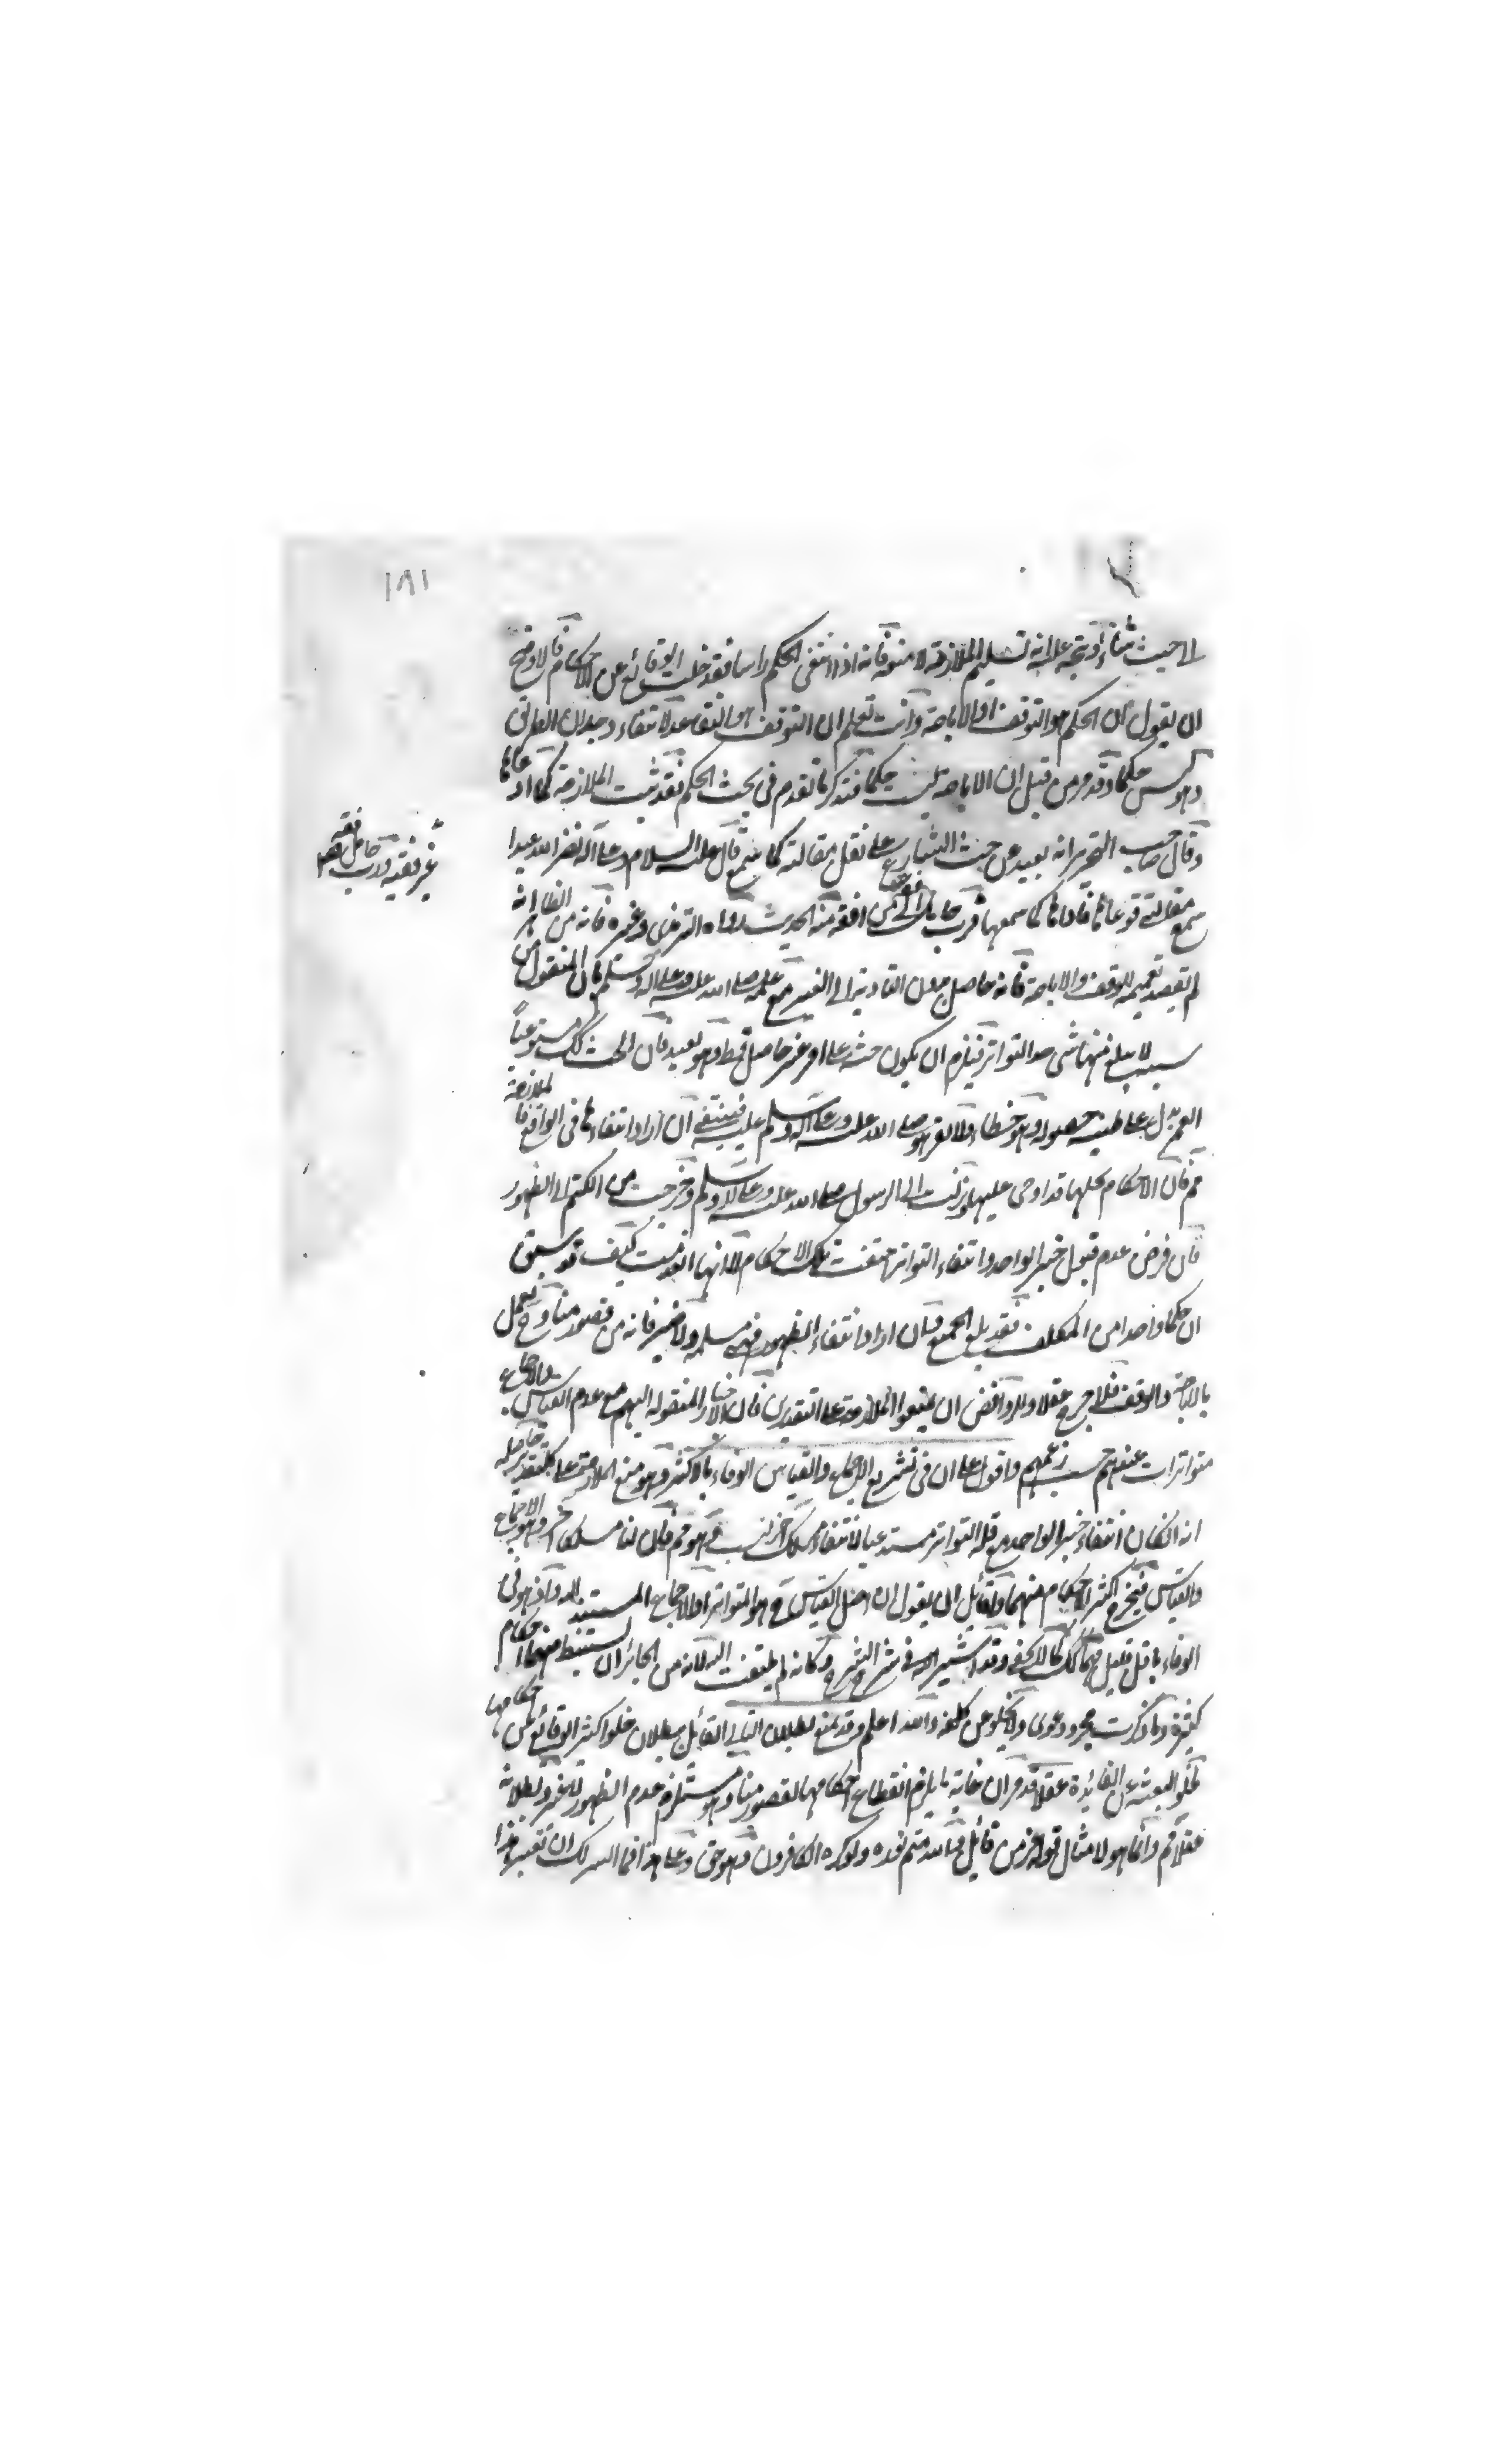 ١٨١
الى حيث شاء ويتجه عليه انه تسليم الملازمة لا منع فانه اذا انتفى الحكم راسا فقد خلت الوقائع عن الاحكام فالاوضح
ان يقول ان الحكم هو التوقف او الاباحة وانت تعلم ان التوقف هو انتفاء
وهو ليس حكما وقد مر من قبل ان الاباحة ليست حكما فتذكر ما تقدم في بحث الحكم فقد ثبت الملازمة كما ادعاها
وقال صاحب التحرير انه بعيد عن حث الشارع على نقل مقالته كما سمع قال عليه السلام وعلى آله نضر الله عبدا
سمع مقالتي فوعاها فاداها كما سمعها فرب حامل فقه الى من افقه منه الحديث رواه الترمذي وغيره فانه من الظاهر انه
لم يقصد تعميمه للوقف والاباحة فانه حاصل بدون التادية الى الغير مع علمه صلى الله عليه وعلى آله وسلم بان المنقول من
سببه لا يبلغ منها شيء حد التواتر فيلزم ان يكون حثه على امر غير حاصل قط وهو بعيد فان الحث كذلك مستوعبا
العمر يدل على ظنية حصوله وهو خطاء ولا يقر هو صلى الله عليه وعلى آله وسلم عليه فينتفي ان اراد انتفاءها في الواقع فالملازمة
مم فان الاحكام بجلها قد اوحى عليها ونزلت الى الرسول صلى الله عليه وعلى آله وسلم وخرجت من الكتم الى الظهور
فان فرض عدم قبول خبر الواحد وانتفاء التواتر اختفت تلك الاحكام لا انها انعدمت كيف قد سبق
ان حكما واحدا من المكلف فقد بلغ الجميع وان اراد انتفاء الظهور فهي مسلمة ولا ضير فانه من قصور منا وح نعمل
بالاباحة والوقف فلا حرج عقلا وللروافض ان يمنعوا الملازمة على التقديرين فان الاخبار المنقولة اليهم مع عدم القياس والاجماع
متواترات عندهم حسب زعمهم واقول على ان في تشريع الاجماع والقياس الوفاء بالاكثر وهو منع الملازمة على كل تقدير حاصله
انه ان كان انتفاء خبر الواحد مع قلة التواتر مستدعيا لانتفاء مسلك آخر فهو مم فان لنا مسلكا آخر وهو الاجماع
والقياس فيخرج اكثر الاحكام منهما ولقائل ان يقول ان اصل القياس ح هو المتواتر او الاجماع المستند اليه واذ هو في
الوفاء باقل قليل فهما كذلك كما لا يخفى وقد اشير اليه في شرح الشرح وكانه لم يلتفت اليه لانه من الجائز ان يستنبط منهما احكام
كثيرة وما ذكرت مجرد دعوى ولا يخلو عن كلفة والله اعلم وقد يمنع بطلان التالي القائل ببطلان خلو اكثر الوقائع عن احكامها
لخلو البعثة عن الفائدة عقلا قد مر ان غاية ما يلزم انقطاع احكامها لقصور منا وهو مستلزم عدم الظهور لا غير وبطلانه
عقلا مم وانما هو لامثال قوله عز من قائل والله متم نوره ولو كره الكافرون وهو حق وعلى هذا فما السر لك ان تعتبر هذا
فقه
غير فقيه ورب حامل فقه